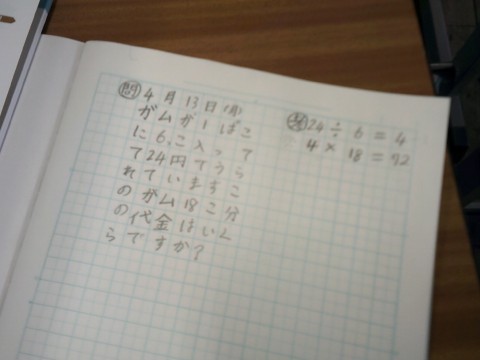 問 4月13日(月)
ガムが1ぱこ
に6こ入って
て24円でうら
れていますこ
のガム18こ分
の代金はいく
らですか?
答 24÷6=4
4×18=72